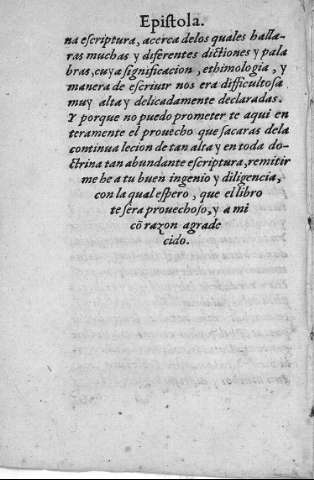 Epiſtola.
na eſcriptura, acerca delos quales halla-
ras muchas y diferentes dictiones y pala
bras, cuya ſignificacion, ethimologia, y
manera de eſcriuir nos era difficultoſa
muy alta y delicadamente declaradas.
Y porque no puedo prometer te aqui en
teramente el prouecho que ſacaras dela
continua lecion de tan alta y en toda do-
ctrina tan abundante eſcriptura, remitir
me he a tu buen ingenio y diligencia,
con la qual eſpero, que el libro
te ſera prouechoſo, y a mi
cõ razon agrade
cido.